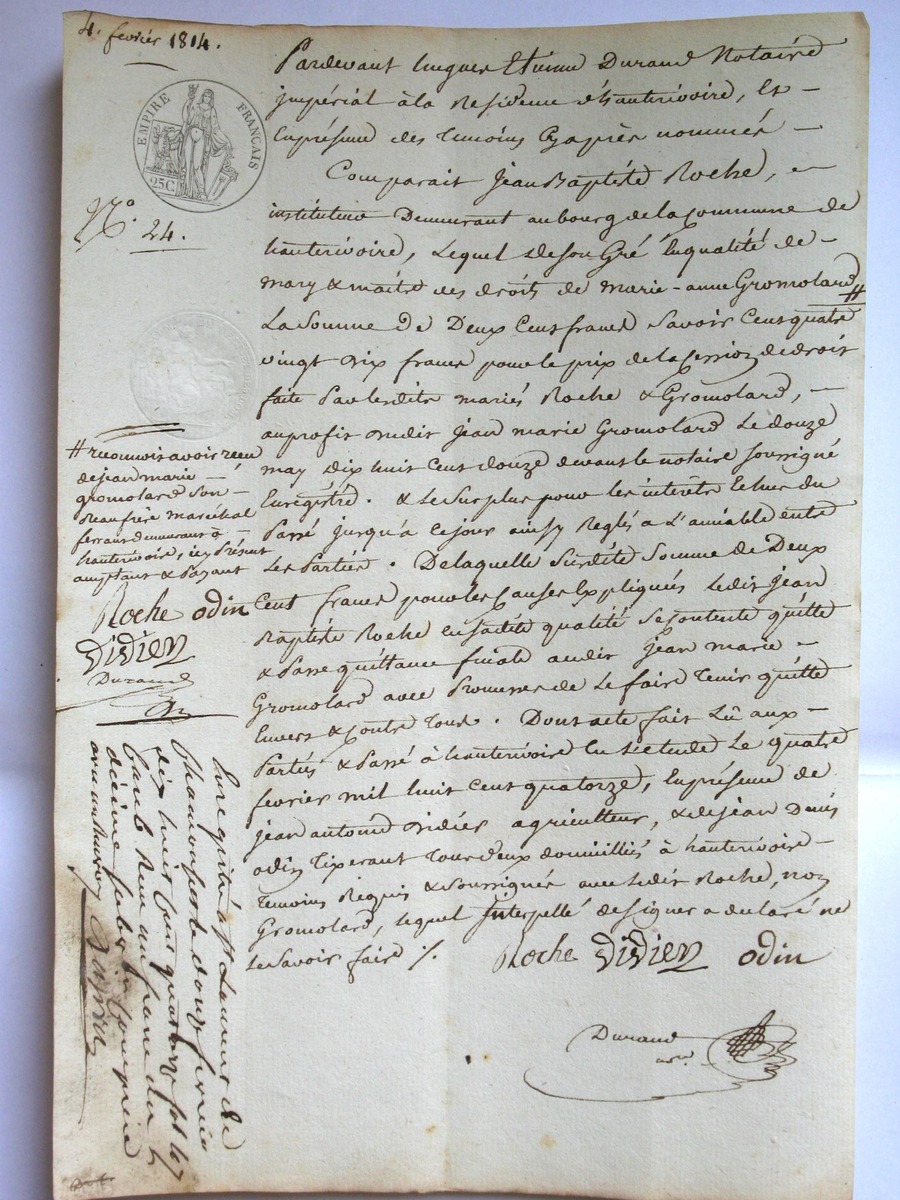 4. fevrier 1814.
EMPIRE FRANÇAIS
25C
N.o
24.
Pardevant hugues Etienne Durand Notaire
jmpérial à la Residence d'hauterivoire, Et
Enprésence des temoins Cyaprès nommés
Comparait Jean Baptiste Roche,
instituteur Demeurant au bourg de la Commune de
hauterivoire, Lequel de son Gré Enqualité de
mary & maitre des droits de marie-anne Gromolard #
La Somme de Deux Cent francs Savoir Cent quatre
vingt dix francs pour le prix de la Cession de droit
faite Par lesdits mariés Roche & Gromolard,
au profit dudit Jean marie Gromolard Le douze
may dix huit cent douze devant le notaire soussigné
Enregistré. & Le Surplus pour les interets Echus du
Passé Jusqu'a ce jour ainsy Reglés a L'amiable entre
Les Parties. De laquelle Surdite Somme de Deux
Cent francs pour les Causes Expliquées Ledit Jean
Baptiste Roche En sadite qualité Se Contente quitte
& Passe quittance finale audit Jean marie
Gromolard avec Promesse de Le faire Tenir quitte
Envers & Contre Tous. Dont acte fait Lû aux
Parties & Passé à hauterivoire En Letude Le quatre
fevrier mil huit Cent quatorze, Enprésence de
jean antoine Didier agriculteur, & de jean Denis
odin Tixerant Tous deux domiciliés à hauterivoire
Temoins Requis & Soussignés avec Ledit Roche, non
Gromolard, Lequel Interpellé de signer a declaré ne
Le Savoir faire ·/.
Roche Didier odin
Durand
# reconnoit avoir reçu
de jean marie
gromolard Son
Beaufrère maréchal
ferrant demeurant à
hauterivoire, icy Présent
acceptant & Payant
Roche odin
Didier
Durand
Enregistré à St Laurent de
Chamousset le douze fevrier
dix huit Cent quatorze fol 67
Reçu un franc du
décime